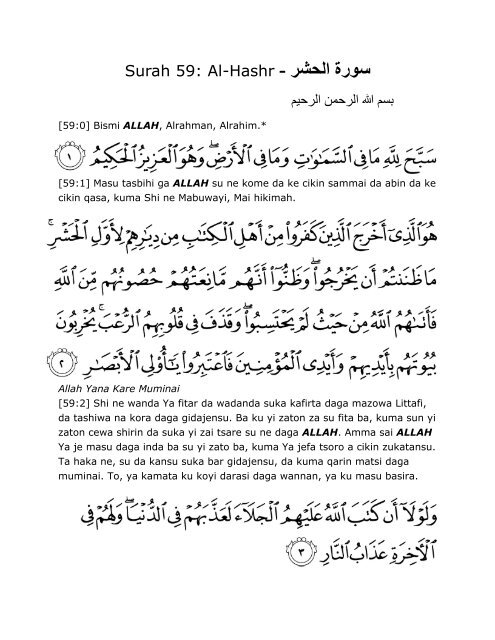 Surah 59: Al-Hashr - سورة الحشر
بسم الله الرحمن الرحيم
[59:0] Bismi ALLAH, Alrahman, Alrahim.*
سَبَّحَ لِلَّهِ مَا فِى ٱلسَّمَٰوَٰتِ وَمَا فِى ٱلْأَرْضِ ۖ وَهُوَ ٱلْعَزِيزُ ٱلْحَكِيمُ ١
[59:1] Masu tasbihi ga ALLAH su ne kome da ke cikin sammai da abin da ke
cikin qasa, kuma Shi ne Mabuwayi, Mai hikimah.
هُوَ ٱلَّذِىٓ أَخْرَجَ ٱلَّذِينَ كَفَرُوا۟ مِنْ أَهْلِ ٱلْكِتَٰبِ مِن دِيَٰرِهِمْ لِأَوَّلِ ٱلْحَشْرِ ۚ
مَا ظَنَنتُمْ أَن يَخْرُجُوا۟ ۖ وَظَنُّوٓا۟ أَنَّهُم مَّانِعَتُهُمْ حُصُونُهُم مِّنَ ٱللَّهِ
فَأَتَىٰهُمُ ٱللَّهُ مِنْ حَيْثُ لَمْ يَحْتَسِبُوا۟ ۖ وَقَذَفَ فِى قُلُوبِهِمُ ٱلرُّعْبَ ۚ يُخْرِبُونَ
بُيُوتَهُم بِأَيْدِيهِمْ وَأَيْدِى ٱلْمُؤْمِنِينَ فَٱعْتَبِرُوا۟ يَٰٓأُو۟لِى ٱلْأَبْصَٰرِ ٢
Allah Yana Kare Muminai
[59:2] Shi ne wanda Ya fitar da wadanda suka kafirta daga mazowa Littafi,
da tashiwa na kora daga gidajensu. Ba ku yi zaton za su fita ba, kuma sun yi
zaton cewa shirin da suka yi zai tsare su ne daga ALLAH. Amma sai ALLAH
Ya je masu daga inda ba su yi zato ba, kuma Ya jefa tsoro a cikin zukatansu.
Ta haka ne, su da kansu suka bar gidajensu, da kuma qarin matsi daga
muminai. To, ya kamata ku koyi darasi daga wannan, ya ku masu basira.
وَلَوْلَآ أَن كَتَبَ ٱللَّهُ عَلَيْهِمُ ٱلْجَلَآءَ لَعَذَّبَهُمْ فِى ٱلدُّنْيَا ۖ وَلَهُمْ فِى
ٱلْءَاخِرَةِ عَذَابُ ٱلنَّارِ ٣